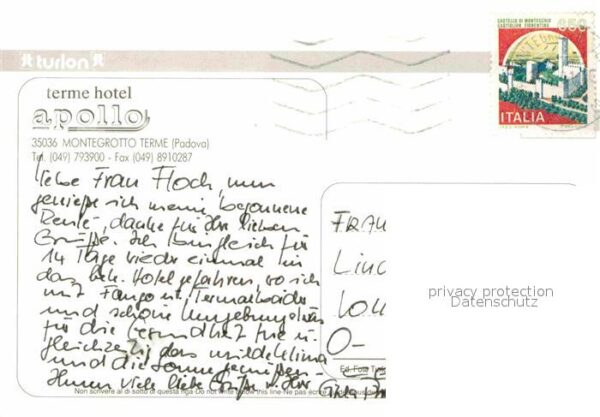 turlon
CASTELLO DI MONTECCHIO
CASTIGLION FIORENTINO
650
ITALIA
terme hotel
apollo
35036 MONTEGROTTO TERME (Padova)
Tel. (049) 793900 - Fax (049) 8910287
Liebe Frau Floch, nun
genieße ich meine begonnene
Rente, danke für Ihre lieben
Grüße. Ich bin gleich für
14 Tage wieder einmal in
das bek. Hotel gefahren, wo ich
mit Fango u. Thermalbäder
und schöne Umgebung
für die Gesundheit tue u.
gleichzeitig das milde Klima
und die Sonne genießen
Ihnen viele liebe Grüße
FRAU
LIND
O-
privacy protection
Datenschutz
Non scrivere al di sotto di questa riga Do not write below this line-Ne pas écrire
Ed. Foto